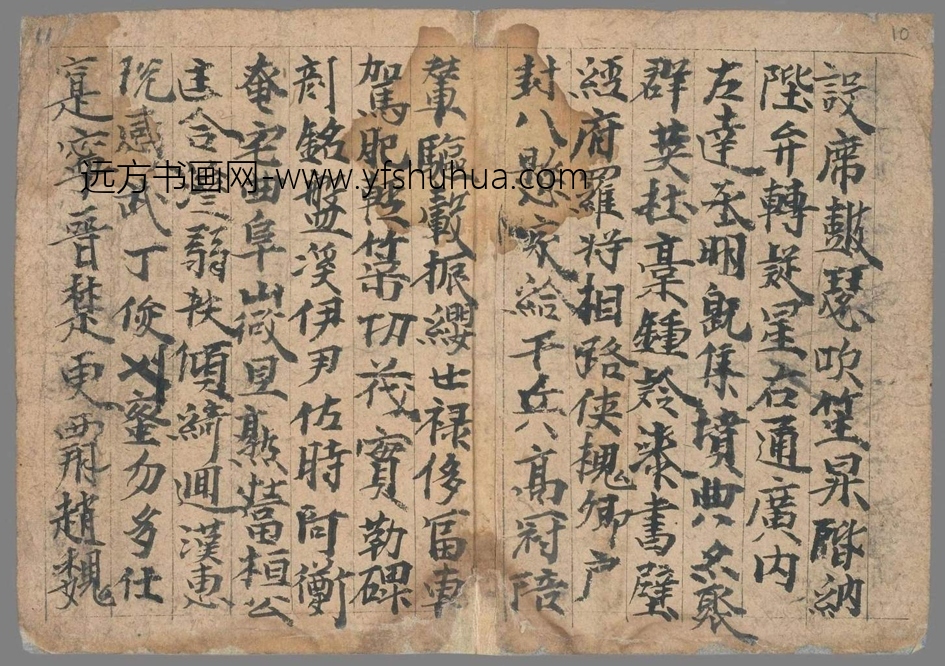 10
設席鼓瑟吹笙昇階納
陛弁轉疑星右通廣内
左達承明既集墳典亦聚
群英杜稾鍾隸漆書壁
經府羅將相路使槐卿戶
封八縣家給千兵高冠陪
11
輦驅轂振纓世禄侈富車
駕肥輕策功茂實勒碑
刻銘盤溪伊尹佐時阿衡
奄宅曲阜微旦熟營桓公
匡合濟弱扶傾綺迴漢惠
說感武丁俊乂密勿多仕
寔寧晉楚更霸趙魏
远方书画网-www.yfshuhua.com